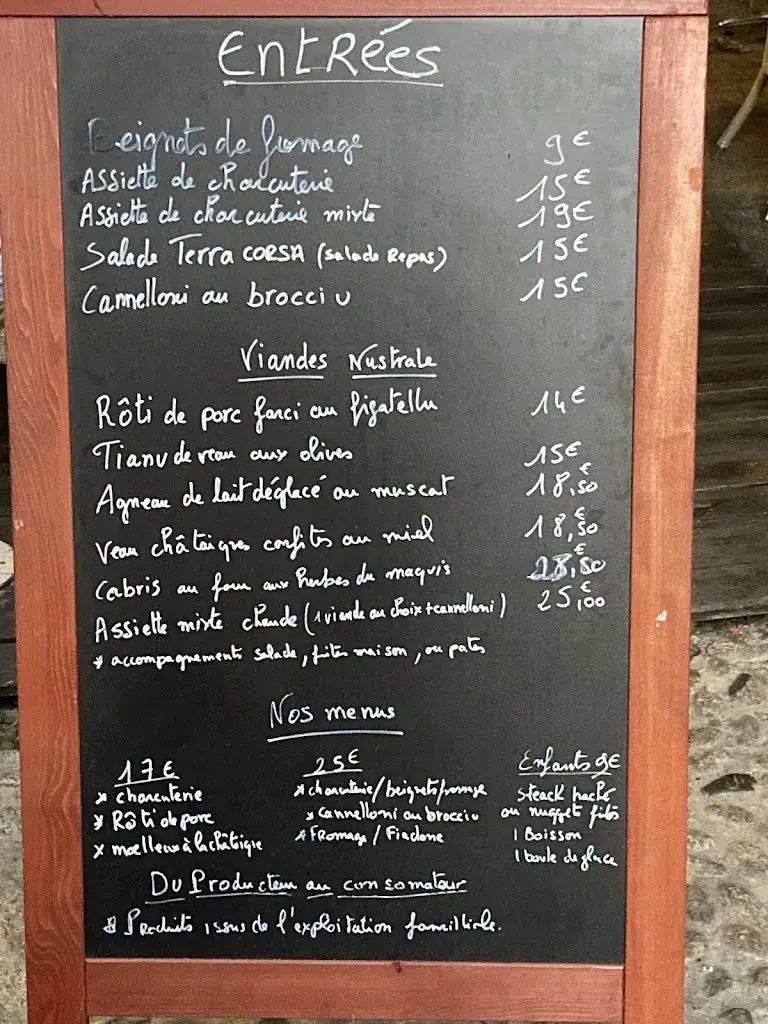 EntRées
Beignets de fromage 9€
Assiette de charcuterie 15€
Assiette de charcuterie mixte 19€
Salade Terra CORSA (salade Repas) 15€
Cannelloni au brocciu 15€
Viandes Nustrale
Rôti de porc farci au figatellu 14€
Tianu de veau aux olives 15€
Agneau de lait déglacé au muscat 18,50€
Veau châtaignes confites au miel 18,50€
Cabris au four aux herbes du maquis 28,50€
Assiette mixte chaude (1 viande au choix + cannelloni) 25,00€
* accompagnements salade, frites maison, ou pates
Nos menus
17€
* charcuterie
* Rôti de porc
* moelleux à la châtaigne
25€
* charcuterie/beignets fromage
* Cannelloni au brocciu
* FRomage / Fiadone
Enfants 9€
Steack haché
ou nugget frites
1 Boisson
1 boule de glace
Du Producteur au consomateur
* Produits issus de l'exploitation familliale.